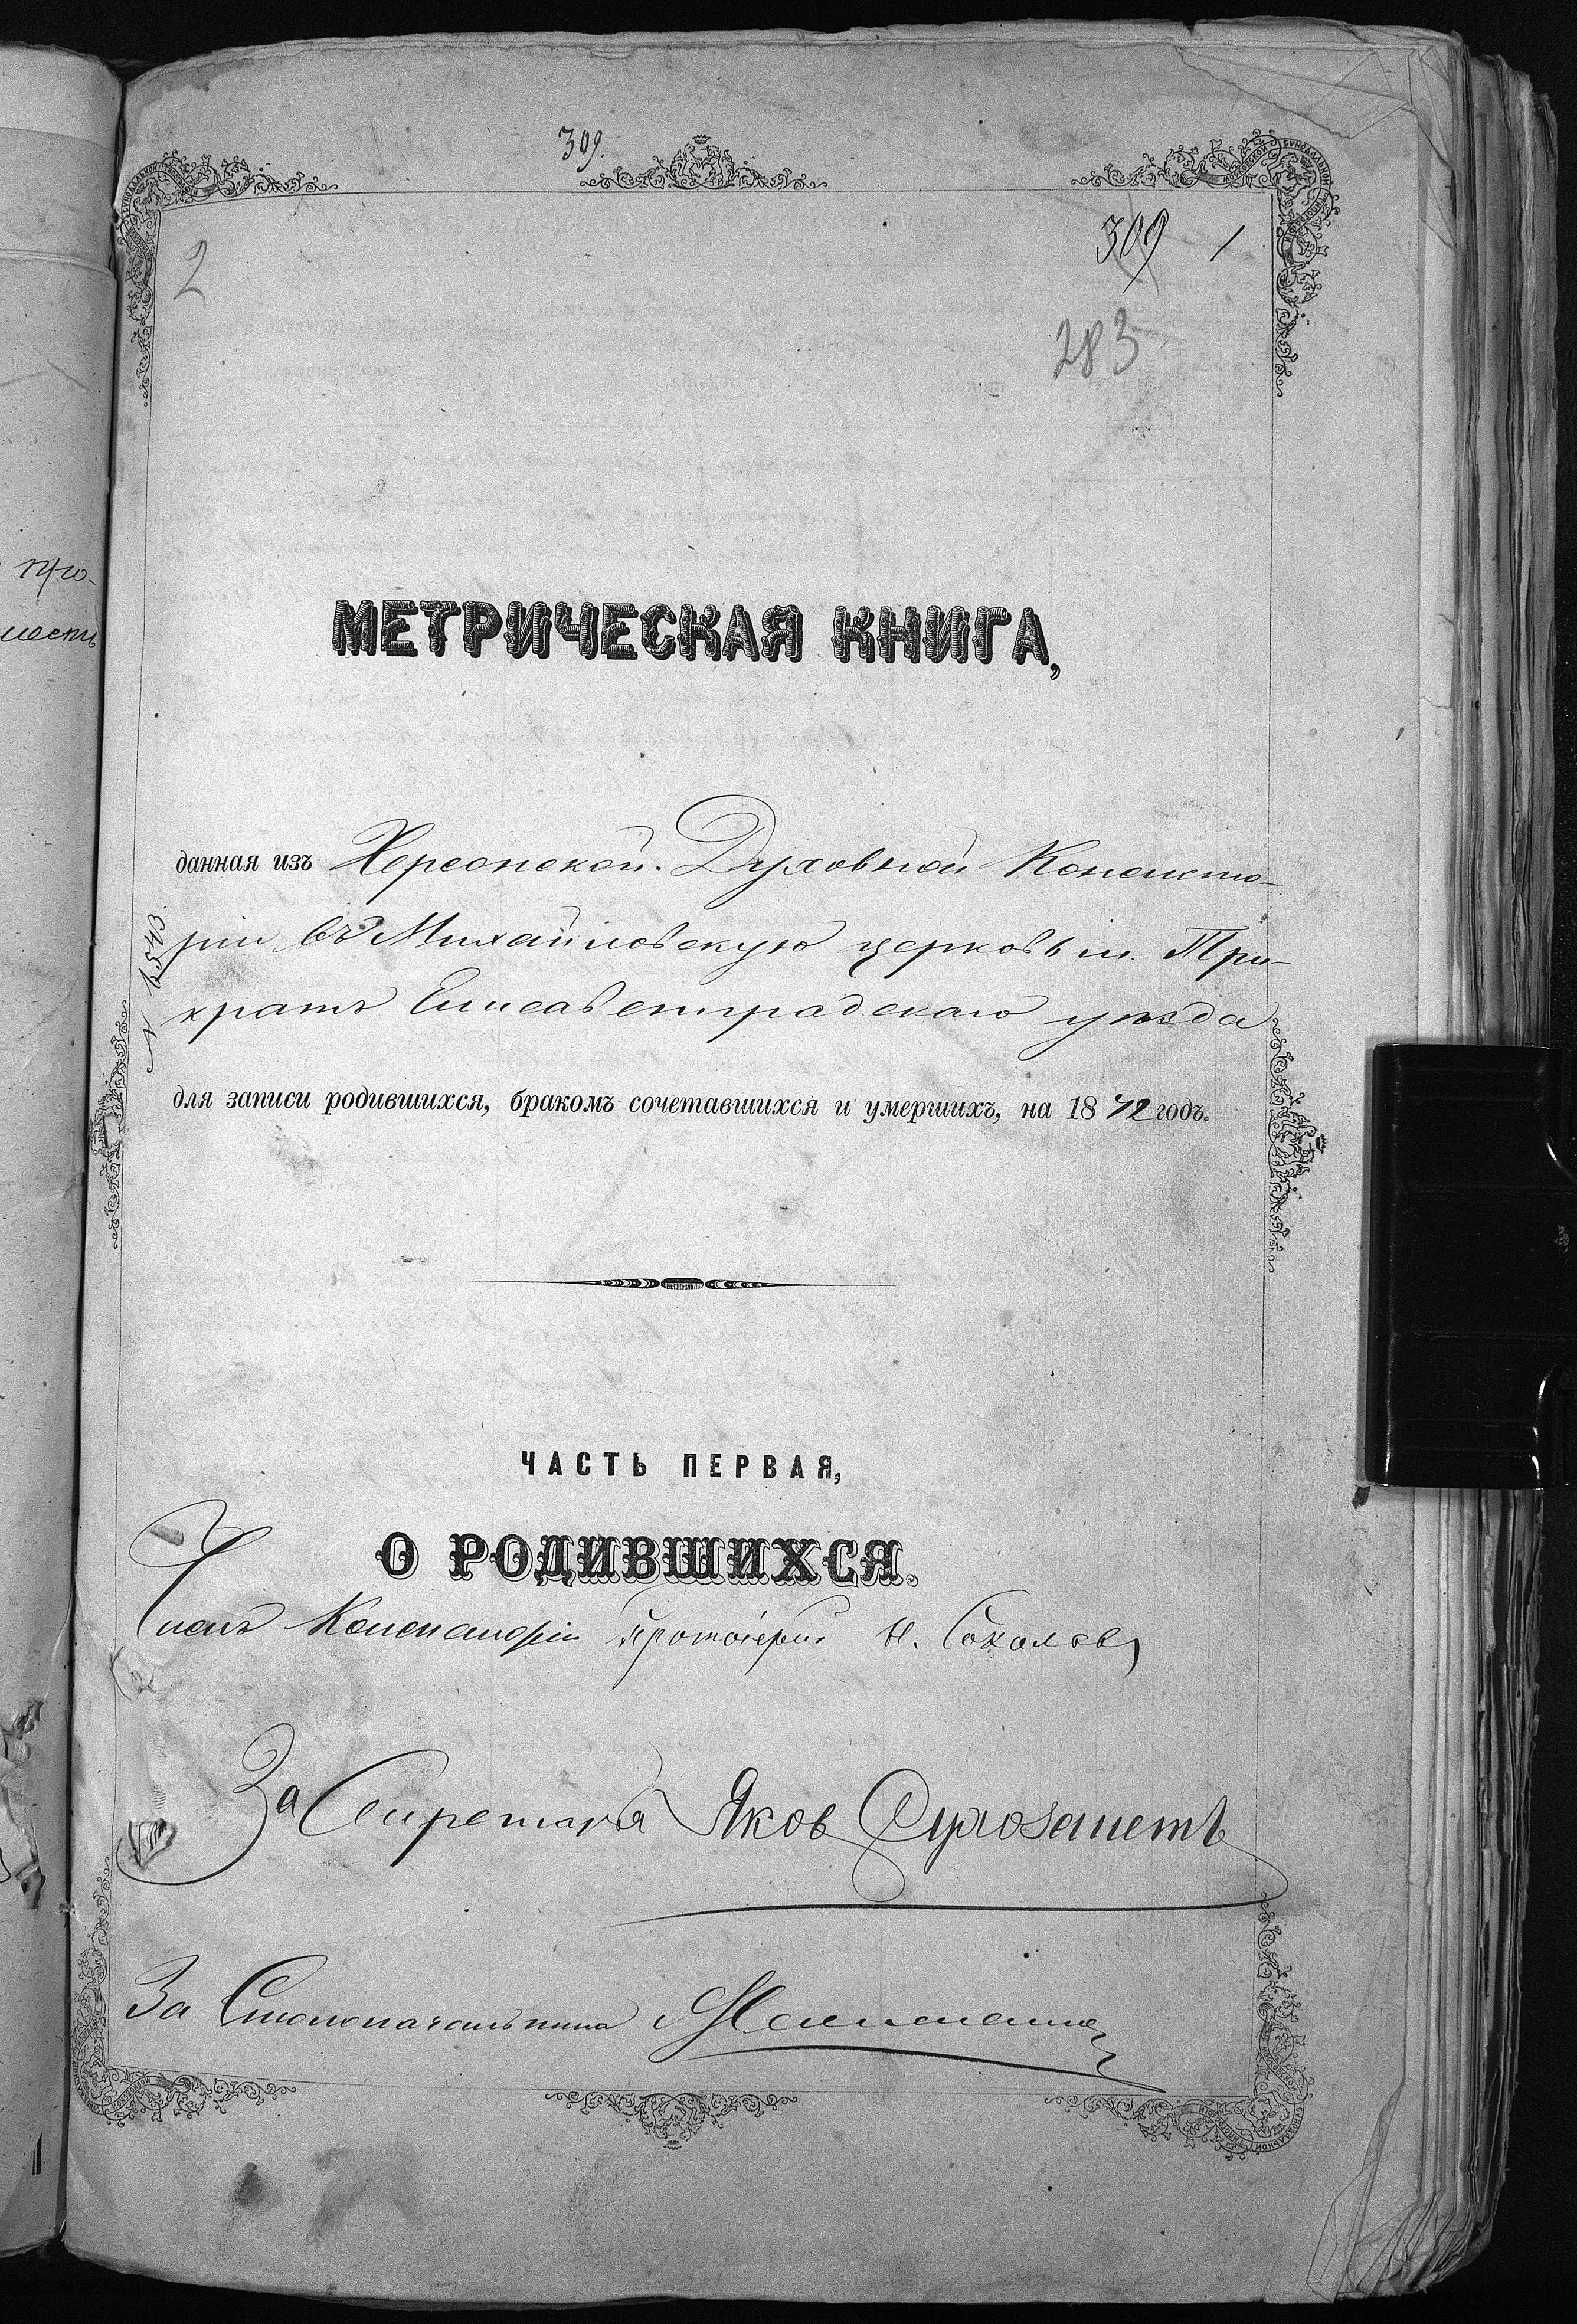 309.
309 1
2
283
МЕТРИЧЕСКАЯ КНИГА,
данная изъ Херсонской Духовной Консисто-
ріи въ Михайловскую церковь м. Три-
кратъ Елисаветградскаго уѣзда
для записи родившихся, бракомъ сочетавшихся и умершихъ, на 1872 годъ.
ЧАСТЬ ПЕРВАЯ,
О РОДИВШИХСЯ.
Членъ Консисторіи Протоіерей Н. Соколовъ
За Секретаря Яковъ
За Столоначальника